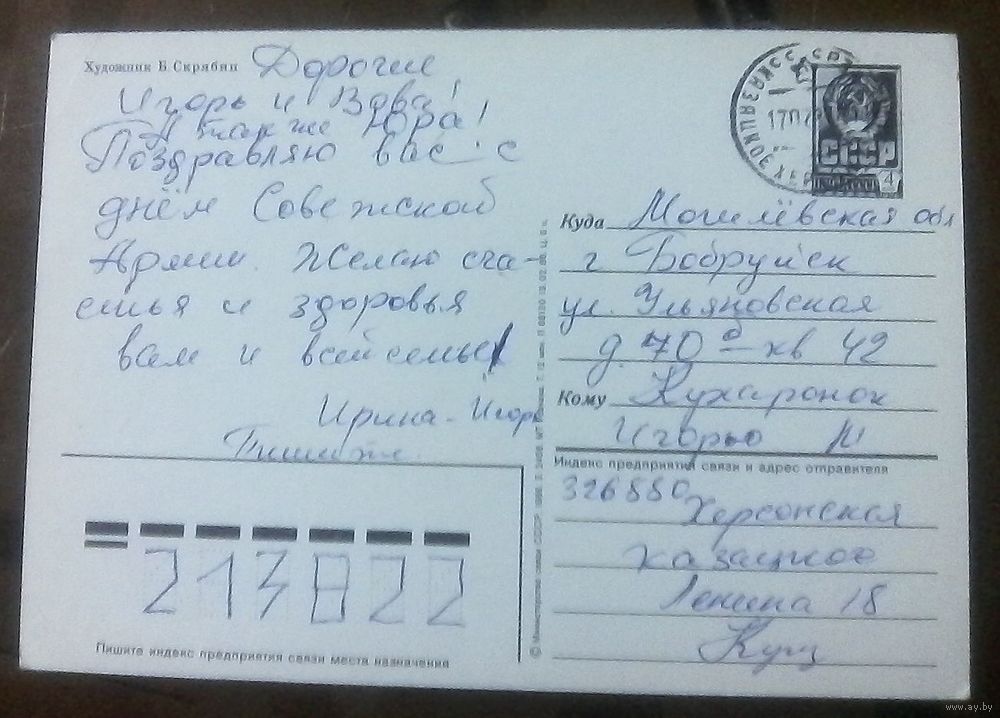 Художник Б. Скрябин
Дорогие
Игорь и Вова!
А также Юра!
Поздравляю вас с
днём Советской
Армии. Желаю сча-
стья и здоровья
вам и всей семье
Ирина - Игорь
Пишите.
СССР
4
Куда Могилёвская обл
г Бобруйск
ул. Ульяновская
д. 70 б кв 42
Кому Кухаронок
Игорю М
Индекс предприятия связи и адрес отправителя
326880 Херсонская
Казацкое
Ленина 18
Кущ
213822
Пишите индекс предприятия связи места назначения
www.ay.by